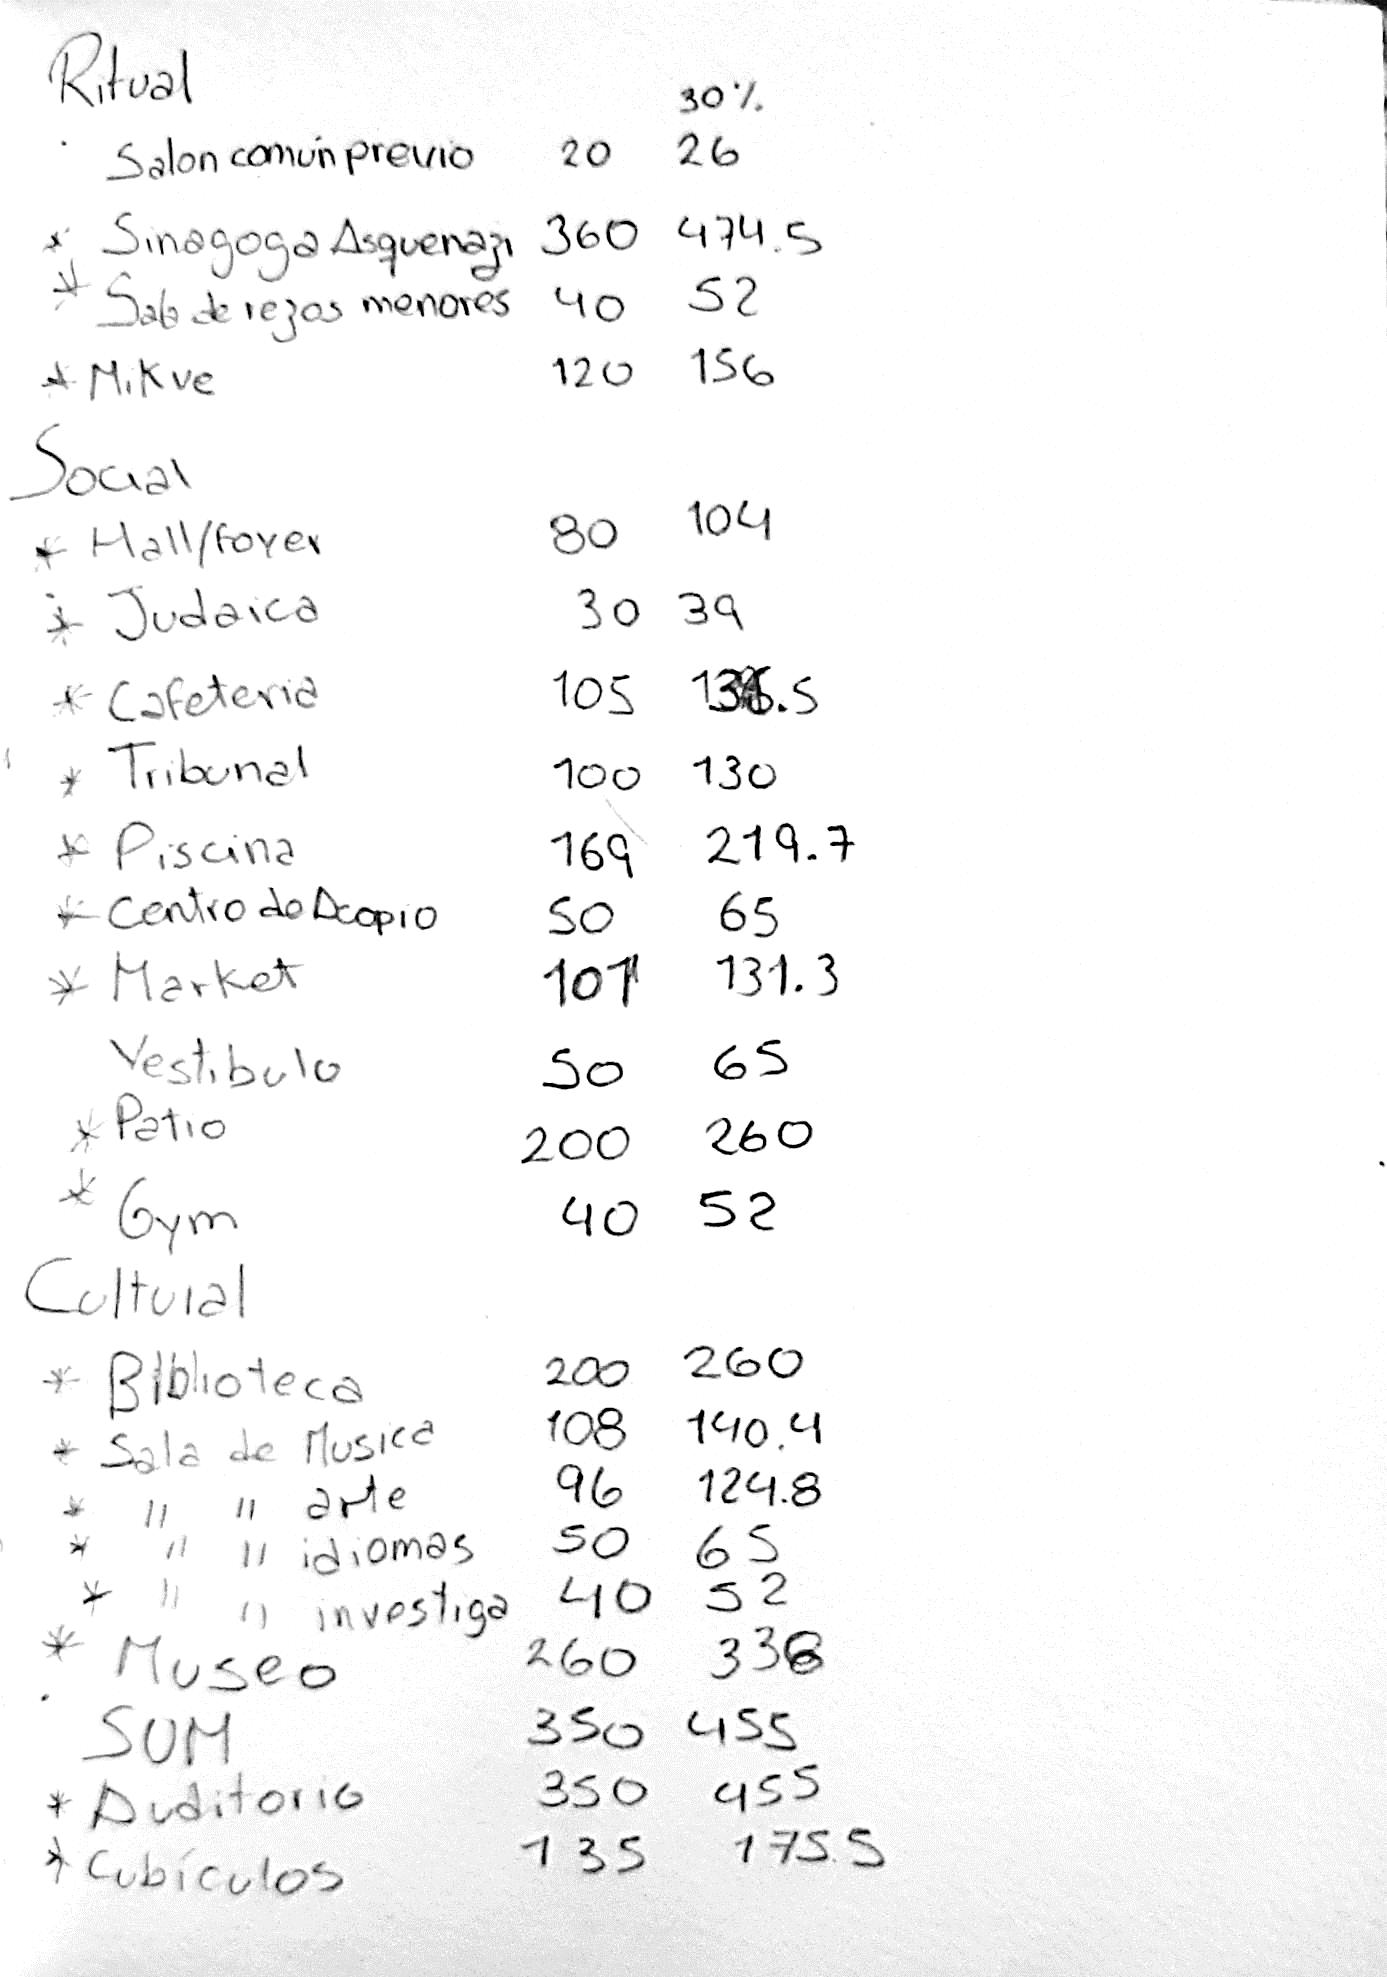 Ritual
30%
Salon común previo 20 26
* Sinagoga Asquenazi 360 474.5
* Sala de rezos menores 40 52
* Mikve 120 156
Social
* Hall/foyer 80 104
* Judaica 30 39
* Cafeteria 105 136.5
* Tribunal 100 130
* Piscina 169 219.7
* Centro de Acopio 50 65
* Market 101 131.3
Vestibulo 50 65
* Patio 200 260
* Gym 40 52
Cultural
* Biblioteca 200 260
* Sala de Musica 108 140.4
* " " arte 96 124.8
* " " idiomas 50 65
* " " investiga 40 52
* Museo 260 338
SUM 350 455
* Auditorio 350 455
* Cubículos 135 175.5